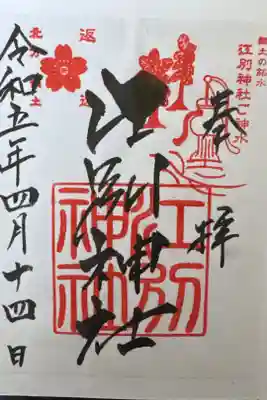 郷土の銘水
江別神社ご神水
奉拝
江別神社
江別
神社
令和五年四月十四日